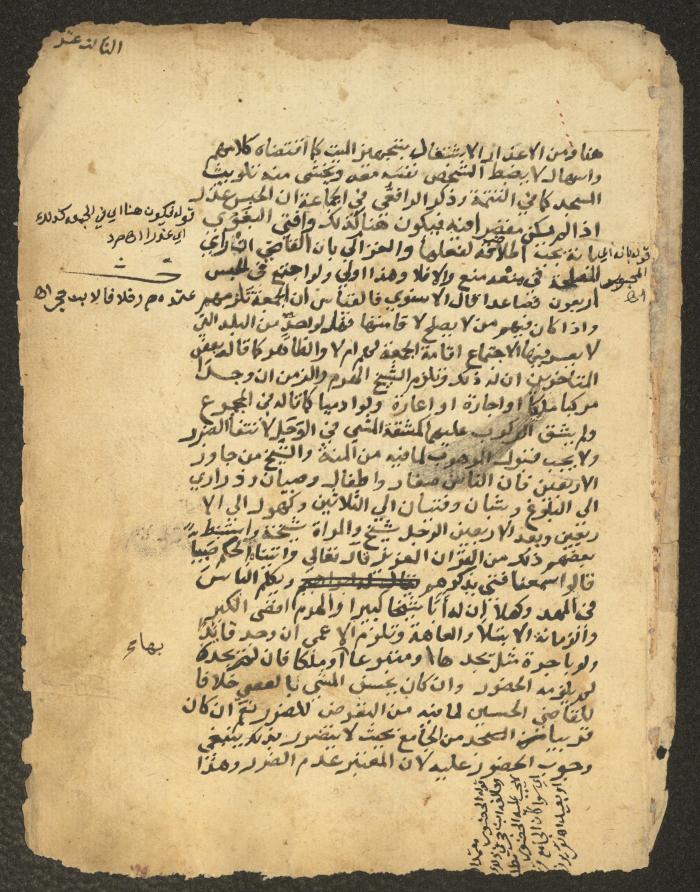 الثالث عشر
هنا ومن الاعذار الاشتغال بتجهيز الميت كما اقتضاه كلامهم
واسهال لا يضبط الشخص نفسه معه ويخشى منه تلويث
المسجد كما في التتمة وذكر الرافعي في الجماعة ان الحبس عذر
اذا لم يكن مقصرا فيه فيكون هنا كذلك وافتى البغوي
بانه يجب اطلاقه لفعلها والغزالي بان القاضي ان راى
المصلحة في منعه منع والا فلا وهذا اولى ولو اجتمع في الحبس
اربعون فصاعدا قال الاسنوي فالقياس ان الجمعة تلزمهم
واذا كان فيهم من لا يصلح لاقامتها فهل لواحد من البلد التي
لا يعسر فيها الاجتماع اقامة الجمعة لهم ام لا والظاهر كما قاله بعض
المتاخرين ان له ذلك وتلزم الشيخ الهرم والزمن ان وجدا
مركبا ملكا او اجارة او اعارة ولو ادميا كما قاله في المجموع
ولم يشق الركوب عليهما كمشقة المشي في الوحل لانتفا الضرر
ولا يجب قبول الموهوب لما فيه من المنة والشيخ من جاوز
الاربعين فان الناس صغار واطفال وصبيان وذراري
الى البلوغ وشبان وفتيان الى الثلاثين وكهول الى الا
ربعين وبعد الاربعين الرجل شيخ والمراة شيخة واستنبط
بعضهم ذلك من القران العزيز قال تعالى واتيناه الحكم صبيا
قالوا سمعنا فتى يذكرهم ويكلم الناس
في المهد وكهلا ان له ابا شيخا كبيرا والهرم اقصى الكبر
والزمانة الابتلا والعاهة وتلزم الاعمى ان وجد قايدا
ولو باجرة مثل يجدها او متبرعا او ملكا فان لم يجده
لم يلزمه الحضور وان كان يحسن المشي بالعصى خلافا
للقاضي الحسين لما فيه من التعرض للضرر نعم ان كان
قريبا من المسجد من الجامع بحيث لا يتضرر بذلك ينبغي
وجوب الحضور عليه لان المعتبر عدم الضرر وهذا
قوله فيكون هنا اي في الجمعة كذلك
اي عذرا
قوله بانه